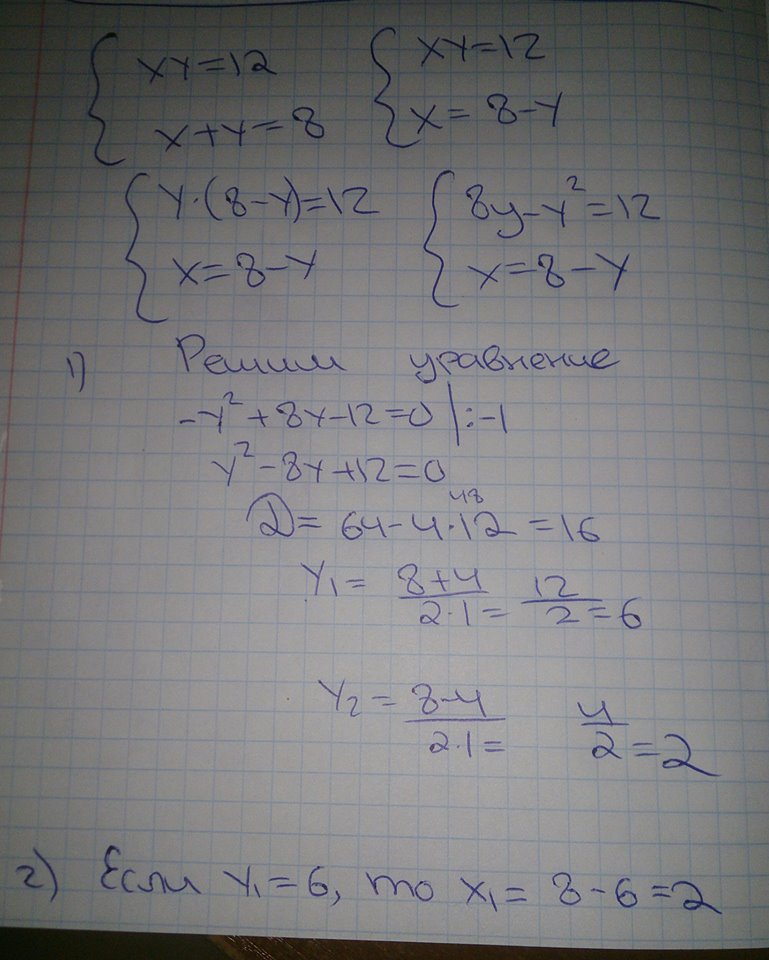 { xy=12 { xy=12
x+y=8 x=8-y
{ y·(8-y)=12 { 8y-y²=12
x=8-y x=8-y
1) Решим уравнение
-y²+8y-12=0 |:-1
y²-8y+12=0
48
D=64-4·12=16
y₁= 8+4/2·1= 12/2=6
y₂= 8-4/2·1= 4/2=2
2) Если y₁=6, то x₁=8-6=2